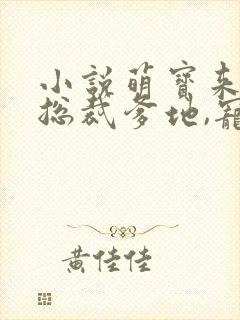 小說萌寶來
总裁爹地,寵
黃佳佳